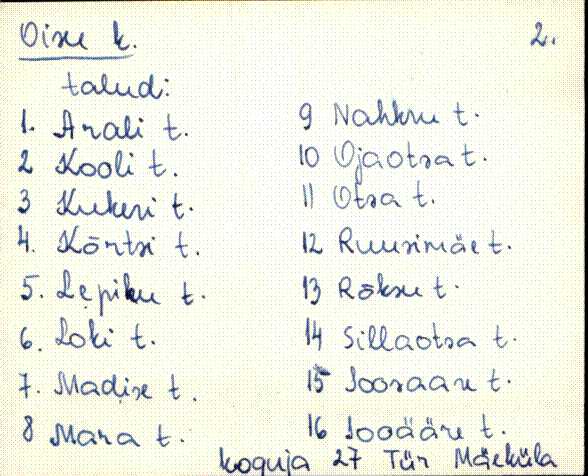 Oisu k. 2.
talud:
1. Arali t.
2 Kooli t.
3 Kukeri t.
4. Kõrtsi t.
5. Lepiku t.
6. Loki t.
7. Madise t.
8 Mara t.
9 Nahksu t.
10 Ojaotsa t.
11 Otsa t.
12 Ruusimäe t.
13 Rõksu t.
14 Sillaotsa t.
15 Soosaare t.
16 Sooääre t.
koguja 27 Tür Mäeküla